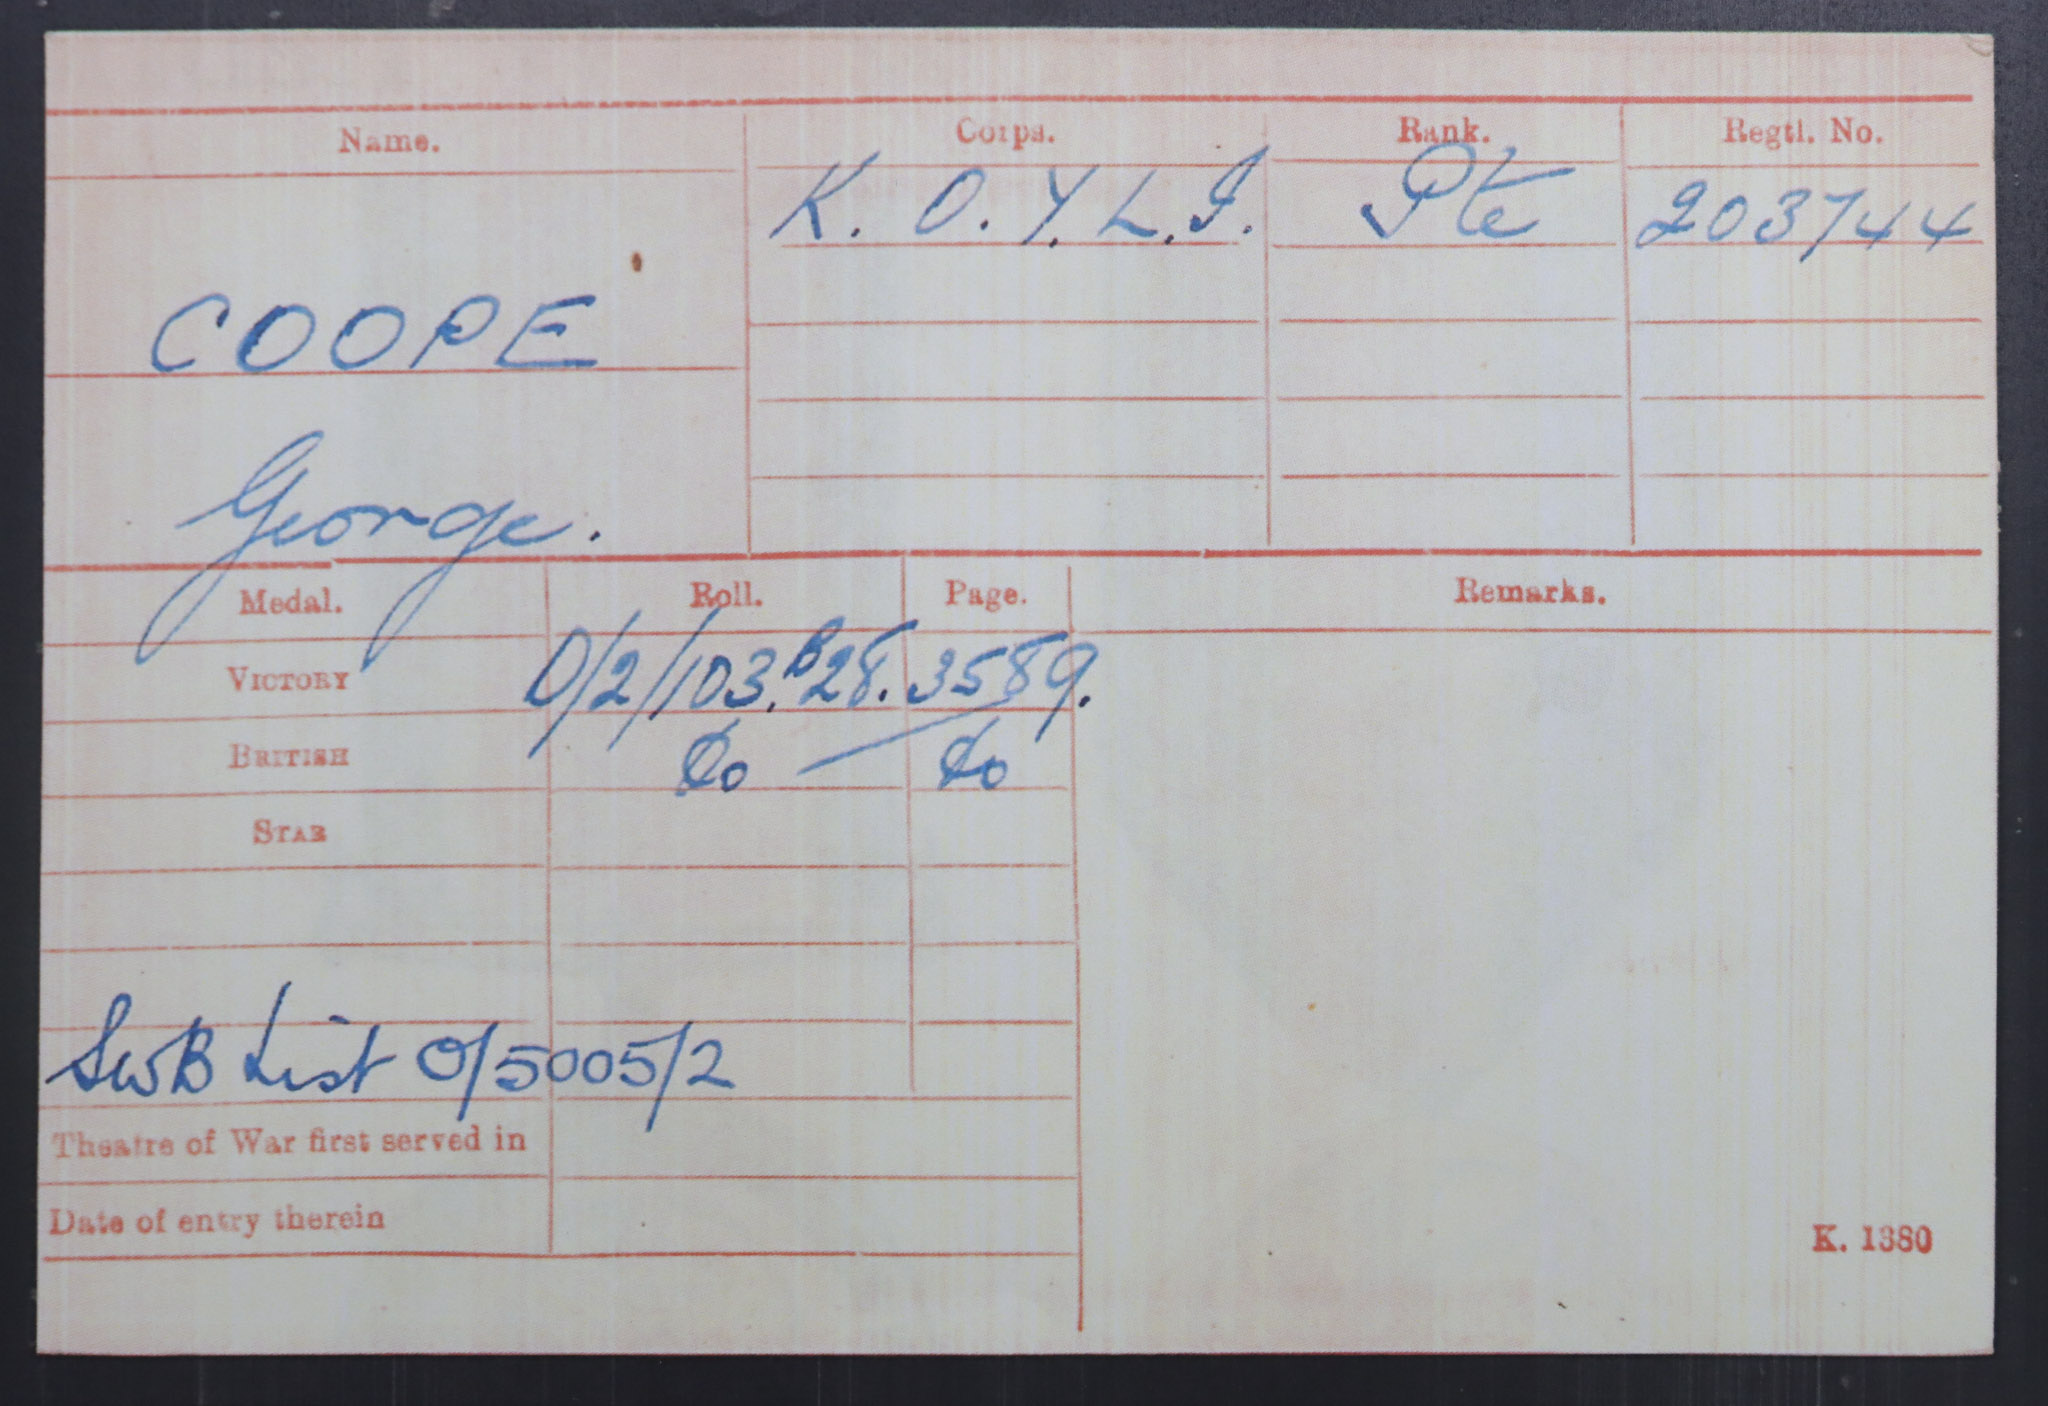 Name. Corps. Rank. Regtl. No.
K. O. Y. L. I. Pte 203744
COOPE
George.
Medal. Roll. Page. Remarks.
VICTORY O/2/103.B28. 3589.
BRITISH do do
STAR
SWB List O/5005/2
Theatre of War first served in
Date of entry therein
K. 1380